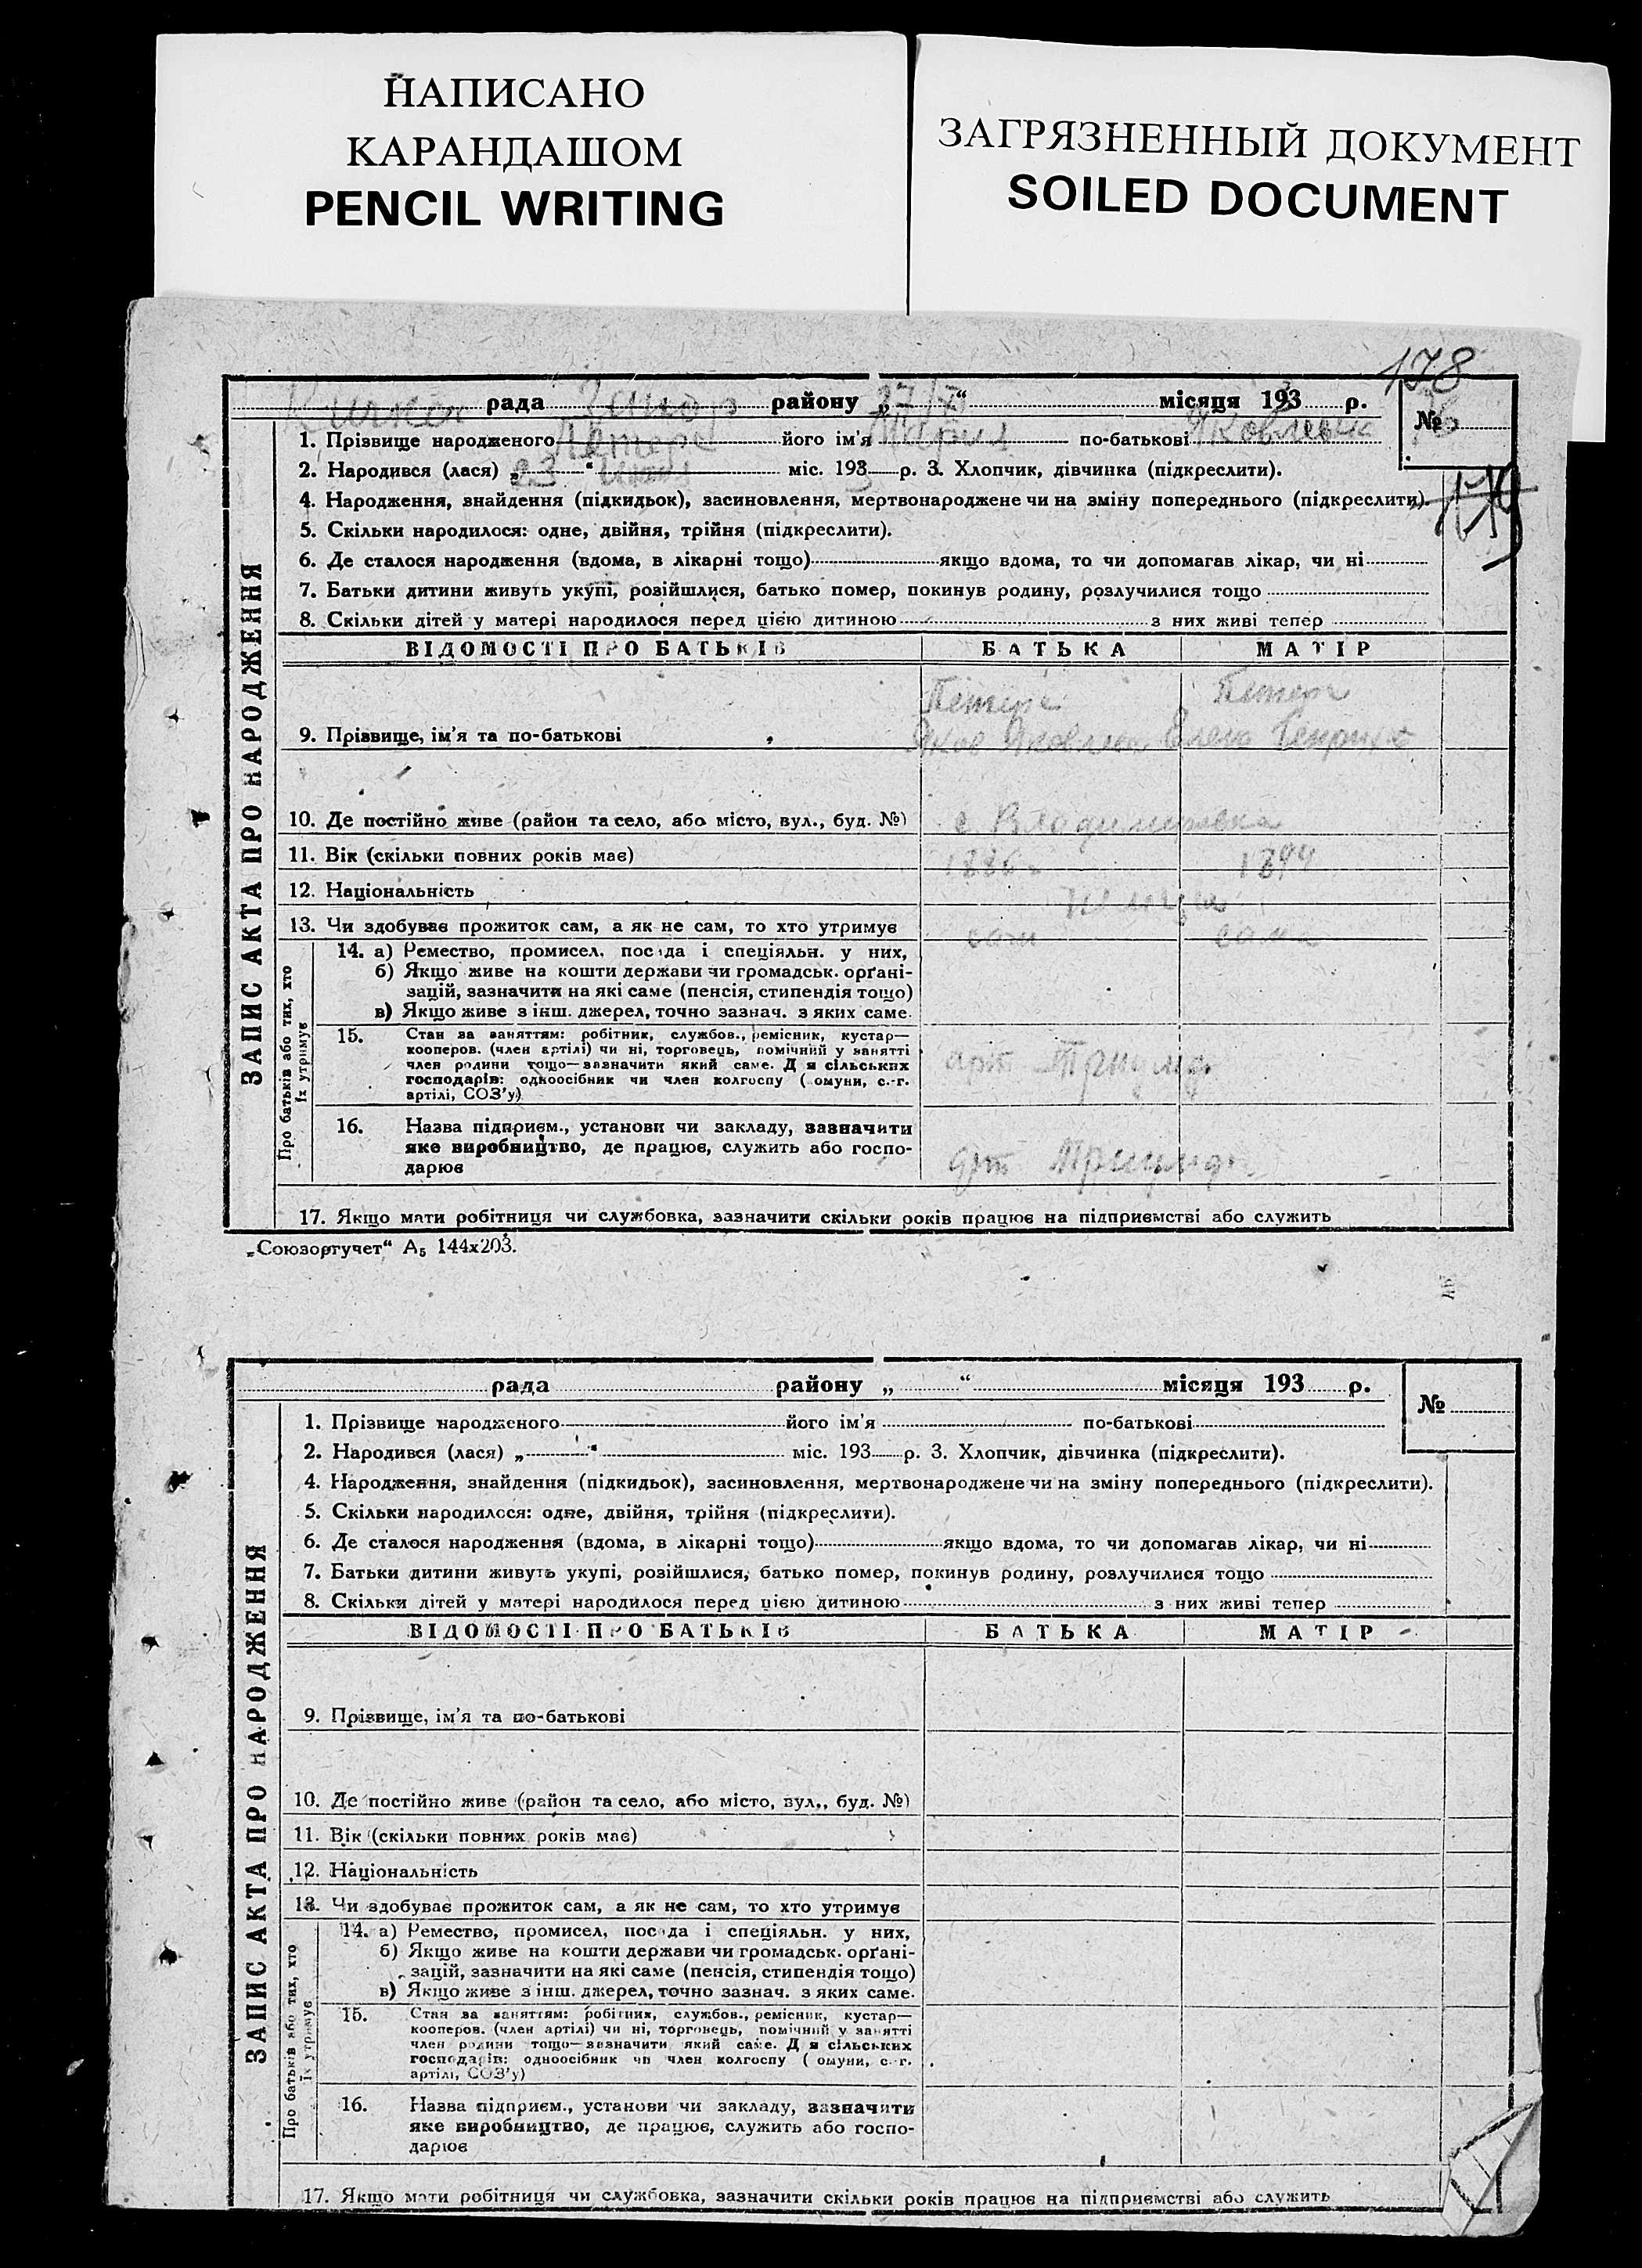 НАПИСАНО
КАРАНДАШОМ
PENCIL WRITING
ЗАГРЯЗНЕННЫЙ ДОКУМЕНТ
SOILED DOCUMENT
178
рада Запор району „ 27/7 “ місяця 1933 р.
№
1. Прізвище народженого Петерс його ім'я Мария по-батькові Яковлевна
2. Народився (лася) „ 23 “ міс. 193 3 р. 3. Хлопчик, дівчинка (підкреслити).
4. Народження, знайдення (підкидьок), засиновлення, мертвонароджене чи на зміну попереднього (підкреслити).
5. Скільки народилося: одне, двійня, трійня (підкреслити).
6. Де сталося народження (вдома, в лікарні тощо) якщо вдома, то чи допомагав лікар, чи ні
7. Батьки дитини живуть укупі, розійшлися, батько помер, покинув родину, розлучилися тощо
8. Скільки дітей у матері народилося перед цією дитиною з них живі тепер
ЗАПИС АКТА ПРО НАРОДЖЕННЯ
ВІДОМОСТІ ПРО БАТЬКІВ БАТЬКА МАТІР
Петерс Петерс
9. Прізвище, ім'я та по-батькові Яков Яковлев Елена Генрих
10. Де постійно живе (район та село, або місто, вул., буд. №) с. Владимировка
11. Вік (скільки повних років має) 1886 1894
12. Національність немцы
13. Чи здобуває прожиток сам, а як не сам, то хто утримує сам сама
Про батьків або тих, хто
їх утримує
14. а) Ремество, промисел, посада і спеціяльн. у них,
б) Якщо живе на кошти держави чи громадськ. орґані-
зацій, зазначити на які саме (пенсія, стипендія тощо)
в) Якщо живе з інш. джерел, точно зазнач. з яких саме.
15. Стан за заняттям: робітник, службов., ремісник, кустар—
кооперов. (член артілі) чи ні, торговець, помічний у занятті
член родини тощо—зазначити який саме. Для сільських
господарів: одноосібник чи член колгоспу (комуни, с.-г.
артілі, СОЗ'у)
арт Триумф
16. Назва підприєм., установи чи закладу, зазначити
яке виробництво, де працює, служить або госпо-
дарює
арт Триумф
17. Якщо мати робітниця чи службовка, зазначити скільки років працює на підприємстві або служить
„Союзоргучет“ А₅ 144х203.
рада району „ “ місяця 193 р.
№
1. Прізвище народженого його ім'я по-батькові
2. Народився (лася) „ “ міс. 193 р. 3. Хлопчик, дівчинка (підкреслити).
4. Народження, знайдення (підкидьок), засиновлення, мертвонароджене чи на зміну попереднього (підкреслити).
5. Скільки народилося: одне, двійня, трійня (підкреслити).
6. Де сталося народження (вдома, в лікарні тощо) якщо вдома, то чи допомагав лікар, чи ні
7. Батьки дитини живуть укупі, розійшлися, батько помер, покинув родину, розлучилися тощо
8. Скільки дітей у матері народилося перед цією дитиною з них живі тепер
ЗАПИС АКТА ПРО НАРОДЖЕННЯ
ВІДОМОСТІ ПРО БАТЬКІВ БАТЬКА МАТІР
9. Прізвище, ім'я та по-батькові
10. Де постійно живе (район та село, або місто, вул., буд. №)
11. Вік (скільки повних років має)
12. Національність
13. Чи здобуває прожиток сам, а як не сам, то хто утримує
Про батьків або тих, хто
їх утримує
14. а) Ремество, промисел, посада і спеціяльн. у них,
б) Якщо живе на кошти держави чи громадськ. орґані-
зацій, зазначити на які саме (пенсія, стипендія тощо)
в) Якщо живе з інш. джерел, точно зазнач. з яких саме.
15. Стан за заняттям: робітник, службов., ремісник, кустар—
кооперов. (член артілі) чи ні, торговець, помічний у занятті
член родини тощо—зазначити який саме. Для сільських
господарів: одноосібник чи член колгоспу (комуни, с.-г.
артілі, СОЗ'у)
16. Назва підприєм., установи чи закладу, зазначити
яке виробництво, де працює, служить або госпо-
дарює
17. Якщо мати робітниця чи службовка, зазначити скільки років працює на підприємстві або служить